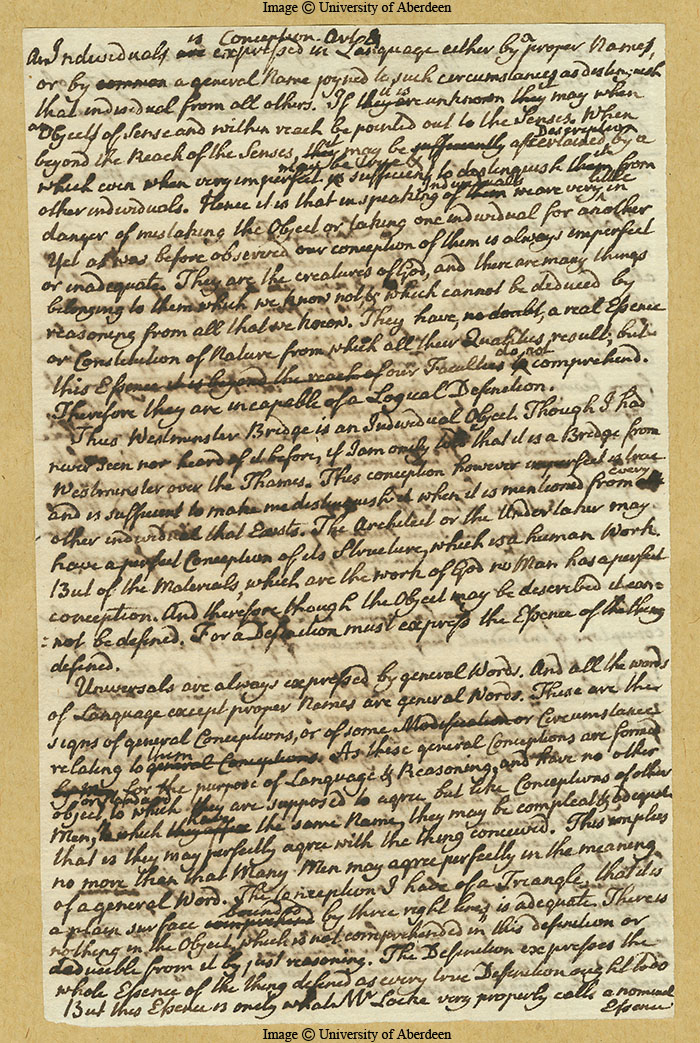 Image © University of Aberdeen
is Conception. Art. 2
An Individuals are expressed in Language either by a proper Names,
or by common a general Name joyned to such circumstances as distinguish
that individual from all others. If they are unknown they it is it may when
an Objects of Sense and within reach be pointed out to the Senses. When
beyond the Reach of the Senses, they it may be sufficiently ascertained by a Description
which even when very imperfect is may be true & sufficient to distinguish them it from
other individuals. Hence it is that in speaking of them individuals we are very little in
danger of mistaking the Object or taking one individual for another
Yet as was before observed our conception of them is always imperfect
or inadequate. They are the creatures of God, and there are many things
belonging to them which we know not, & which cannot be deduced by
reasoning from all that we know. They have, no doubt, a real Essence
or Constitution of Nature from which all their Qualities result; but
this Essence it is beyond the reach of our Faculties do not comprehend.
Therefore they are incapable of a Logical Definition.
Thus Westminster Bridge is an Individual Object. Though I had
never seen nor heard of it before, if I am onely told that it is a Bridge from
Westminster over the Thames. This conception however imperfect is true
and is sufficient to make me distinguish it when it is mentioned from every
other individual that Exists. The Architect or the Undertaker may
have a perfect Conception of its Structure, which is a human Work.
But of the Materials, which are the work of God no Man has a perfect
conception. And therefore though the Object may be described it can=
=not be defined. For a Definition must express the Essence of the thing
defined.
Universals are always expressed by general Words. And all the words
of Language except proper Names are general Words. These are the
signs of general Conceptions, or of some Modification or Circumstance
relating to general Conceptions. them As these general Conceptions are formed
for the purpose of Language & Reasoning, and have no other
object to which they are supposed to agree but like Conceptions of other
Men, to which they affix the same Name, they may be compleat & adequate
that is they may perfectly agree with the thing conceived. This implies
no more than that Many Men may agree perfectly in the meaning
of a general Word. The conception I have of a Triangle, that it is
a plain surface comprehend bounded by three right lines is adequate. There is
nothing in the Object, which is not comprehended in this definition or
deducible from it by just reasoning. The Definition expresses the
whole Essence of the thing defined as every true Definition ought to do
But this Essence is onely what Mr Locke very properly calls a nominal
Essence
Image © University of Aberdeen